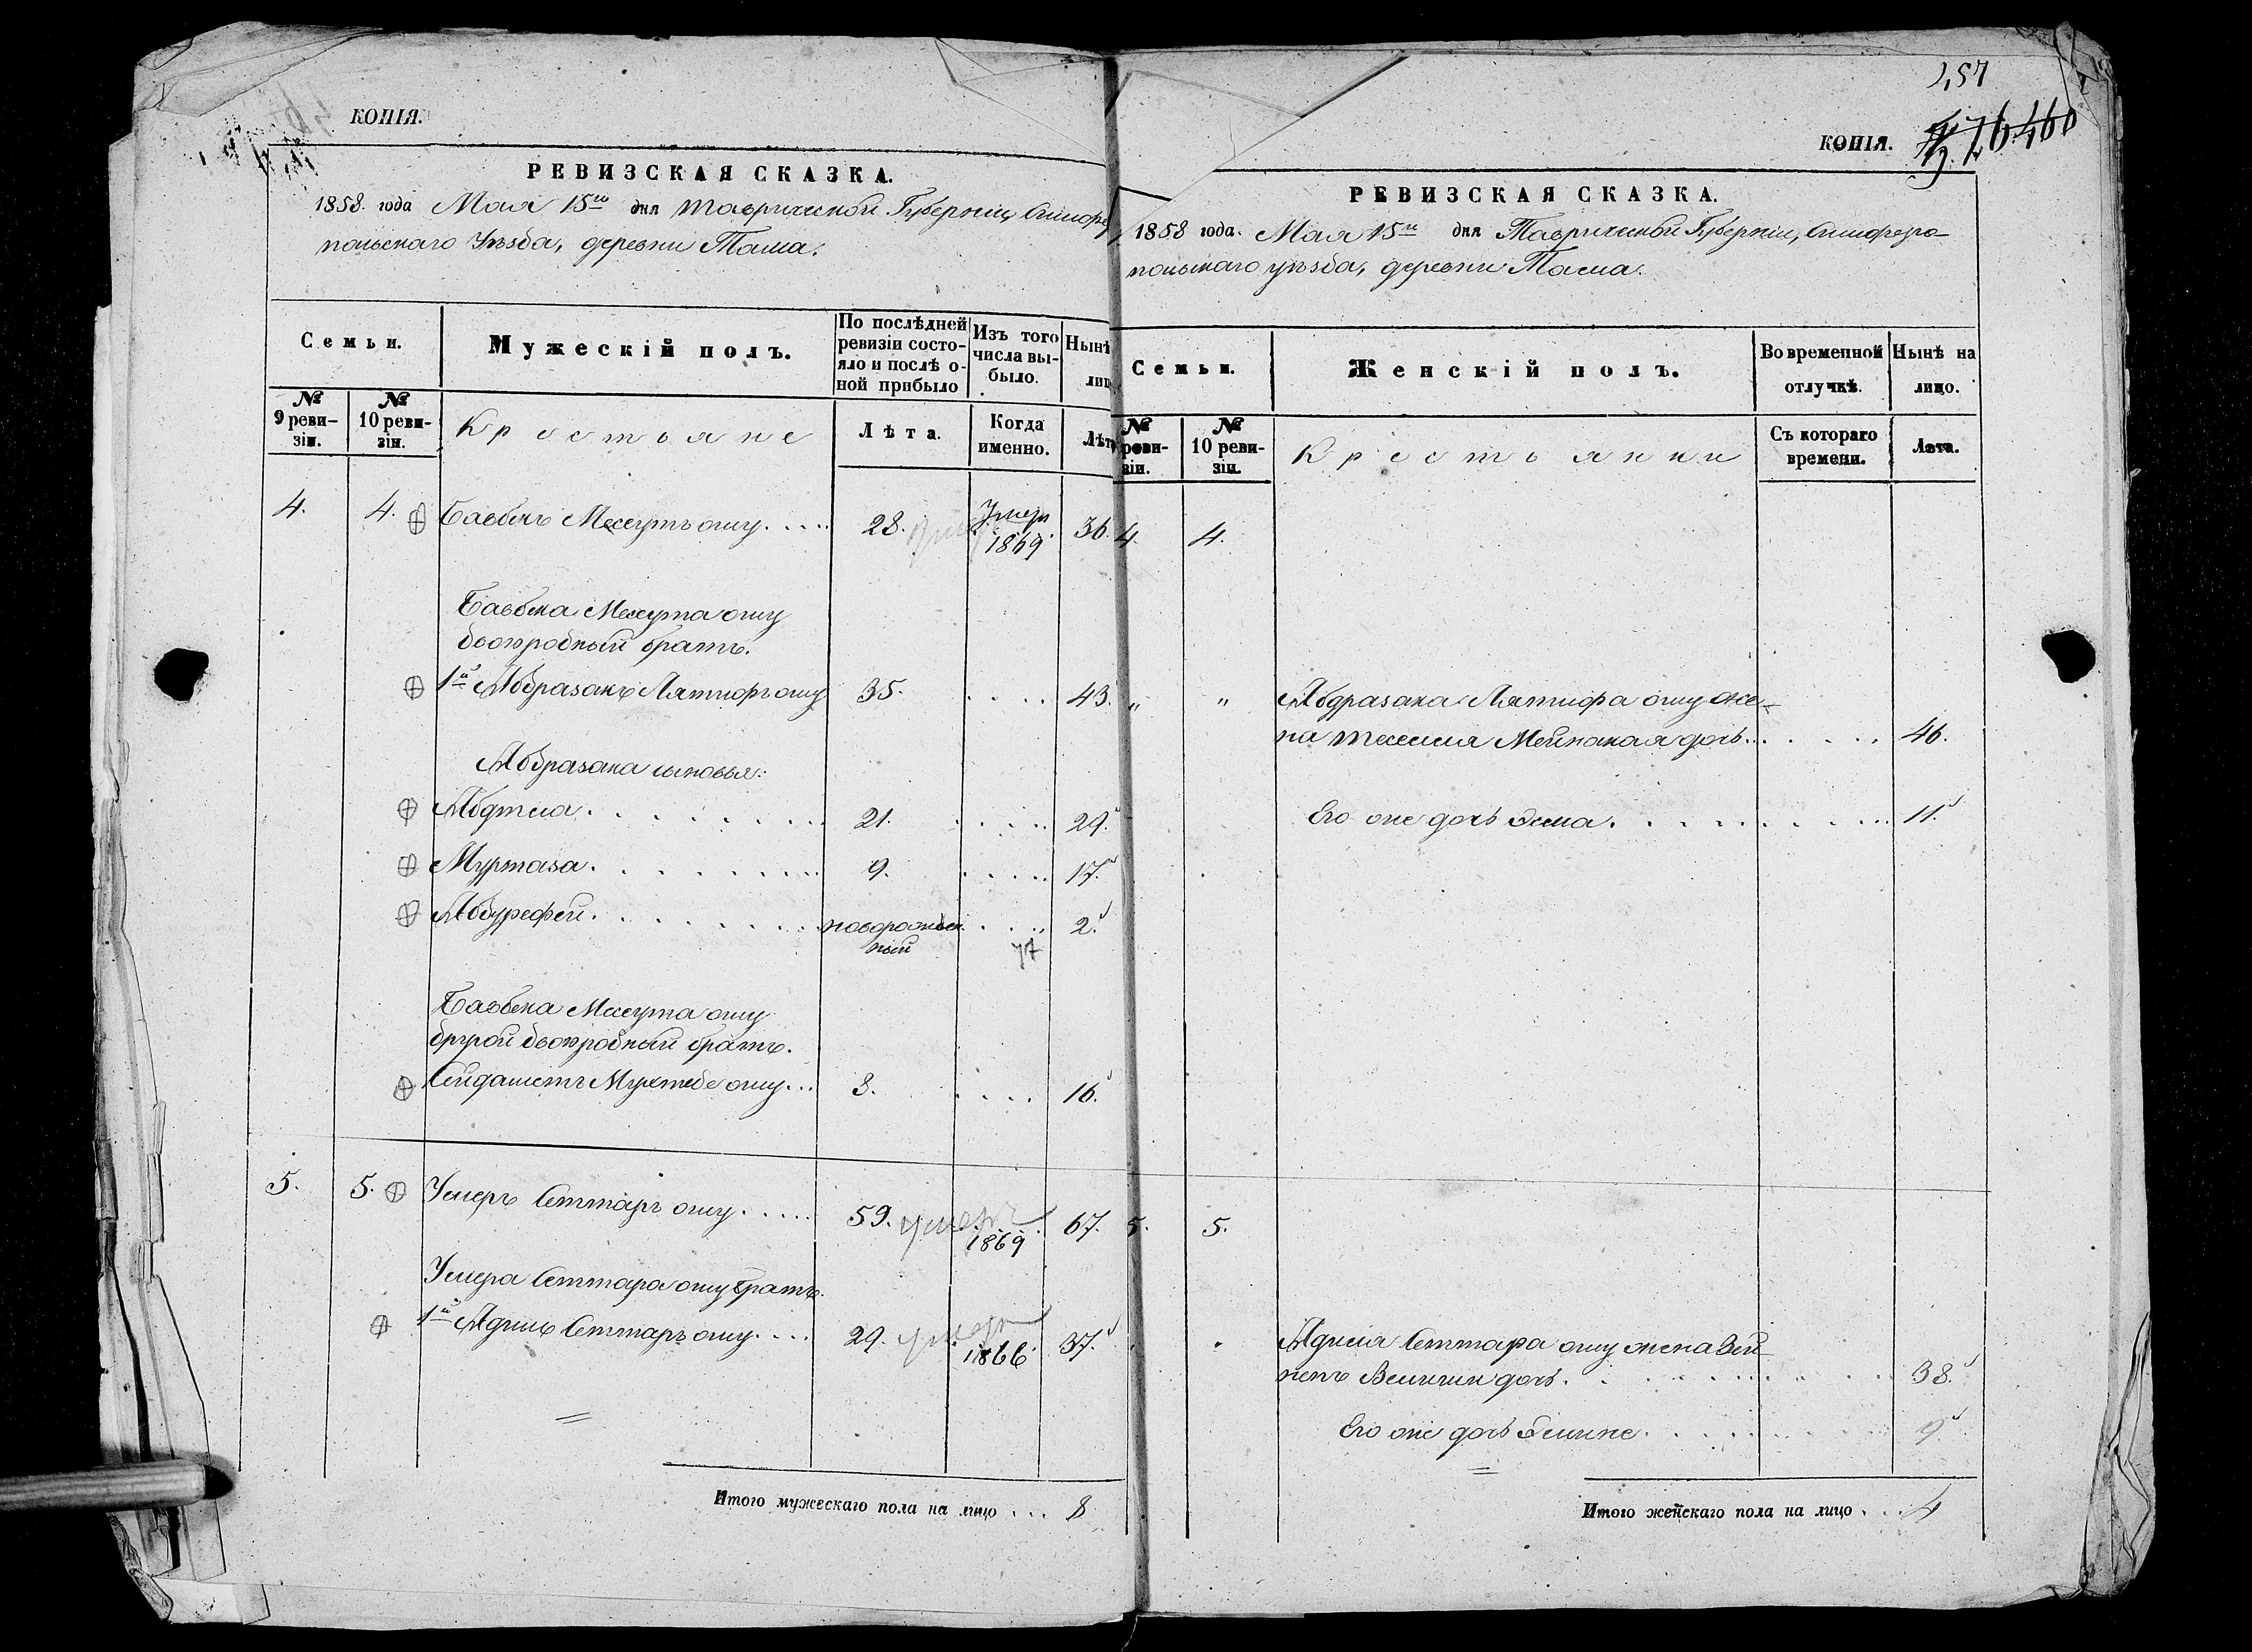 КОПІЯ.
РЕВИЗСКАЯ СКАЗКА.
1858 года Мая 15го дня Таврической Губерніи, Симферо-
польскаго Уѣзда, деревни Тама.
Семьи.
Мужескій полъ.
По послѣдней ревизіи состояло и послѣ оной прибыло
Изъ того числа выбыло.
Нынѣ лиц
№ 9 ревизіи.
№ 10 ревизіи.
Крестьяне
Лѣта.
Когда именно.
Лѣта
4. 4. 28. Умеръ 1869 36.
двоюродный братъ.
1й Абдразакъ Лятифъ оглу 35. 43.
Абдразака сыновья:
21. 29.
Муртаза 9. 17.
Абдурефей новорожден
ный 2.
другой двоюродный братъ.
8. 16.
5. 5. Умеръ Сеттаръ оглу 59. умеръ 1869 67.
Умера Сеттара оглу братъ.
1й Адиль Сеттаръ оглу 29. умеръ 1866 37.
Итого мужескаго пола на лицо . . . 8
457
КОПІЯ.
460
РЕВИЗСКАЯ СКАЗКА.
1858 года Мая 15го дня Таврической Губерніи, Симферо-
польскаго уѣзда, деревни Тама.
Семьи.
Женскій полъ.
Во временной отлучкѣ.
Нынѣ на лицо.
№ реви-зіи.
№ 10 ревизіи.
Крестьянки
Съ котораго времени.
Лѣта.
4. 4.
" " Абдразака Лятифа оглу же-
на дочь 46.
Его же дочь Эсма 11.
5. 5.
Адиля Сеттара оглу жена Зей-
непъ дочь 38.
Его же дочь Эмине 9
Итого женскаго пола на лицо . . . 4